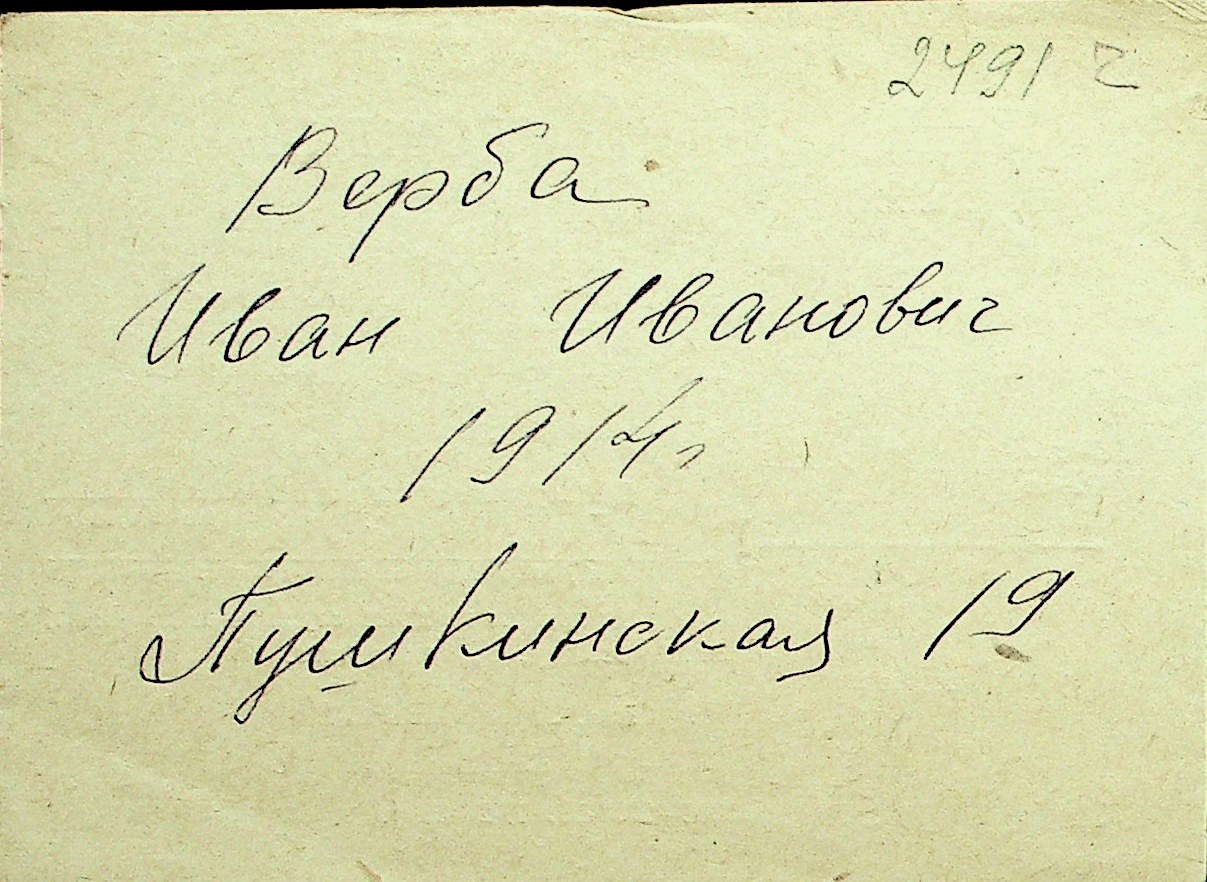 2491 ч
Верба
Иван Иванович
1914г
Пушкинская 19